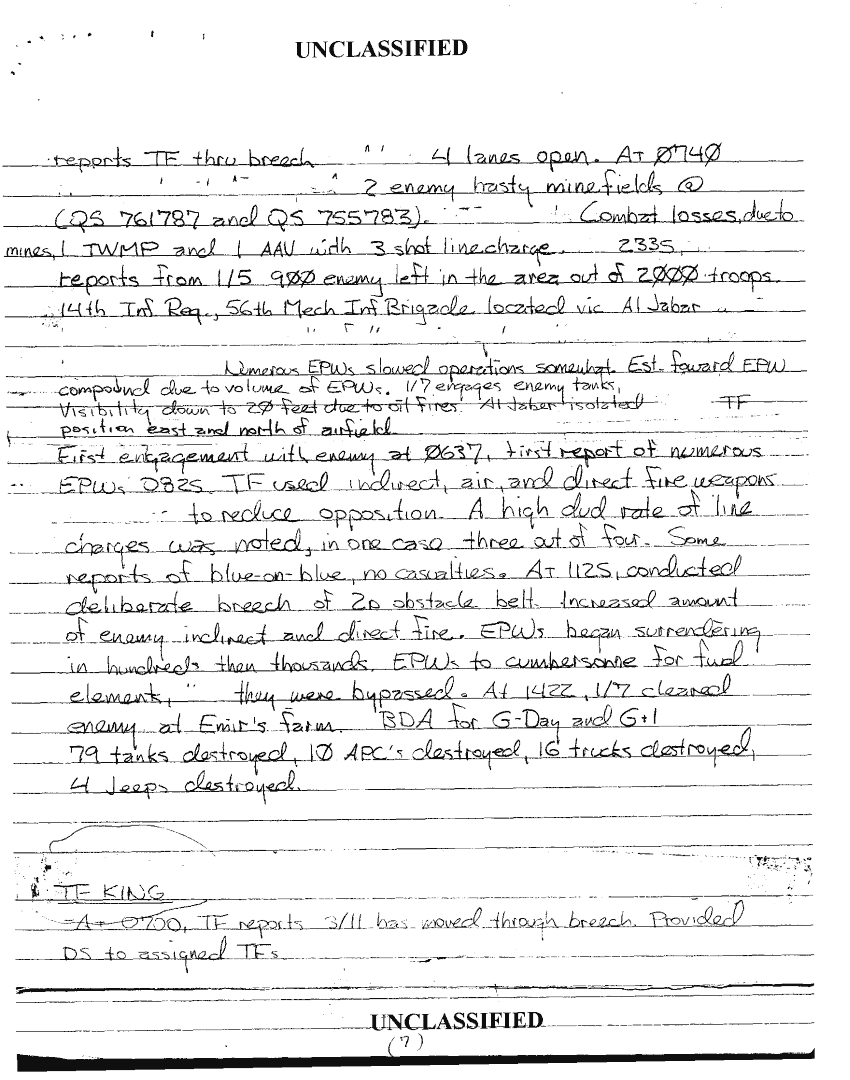 UNCLASSIFIED
reports TF thru breech 4 lanes open. At Ø74Ø
2 enemy hasty minefields @
(QS 761787 and QS 755783). Combat losses, due to
mines, 1 TWMP and 1 AAV with 3 shot linecharge. 2335,
reports from 1/5 9ØØ enemy left in the area out of 2ØØØ troops.
14th Inf Reg., 56th Mech Inf Brigade located vic Al Jabar
Numerous EPWs slowed operations somewhat. Est. foward EPW
compound due to volume of EPWs. 1/7 engages enemy tanks,
Visibility down to 2Ø feet due to oil fires. Al Jaber isolated TF
position east and north of airfield.
First engagement with enemy at Ø637, first report of numerous
EPWs 0825. TF used indirect, air, and direct fire weapons
to reduce opposition. A high dud rate of line
charges was noted, in one case three out of four. Some
reports of blue-on-blue, no casualties. At 1125, conducted
deliberate breech of 2D obstacle belt. Increased amount
of enemy indirect and direct fire. EPWs began surrendering
in hundreds then thousands. EPWs to cumbersome for fwd
element, they were bypassed. At 1422, 1/7 cleared
enemy at Emir's farm. BDA for G-Day and G+1
79 tanks destroyed, 1Ø APC's destroyed, 16 trucks destroyed,
4 Jeeps destroyed.
TF KING
At 0700, TF reports 3/11 has moved through breech. Provided
DS to assigned TFs
UNCLASSIFIED
(7)